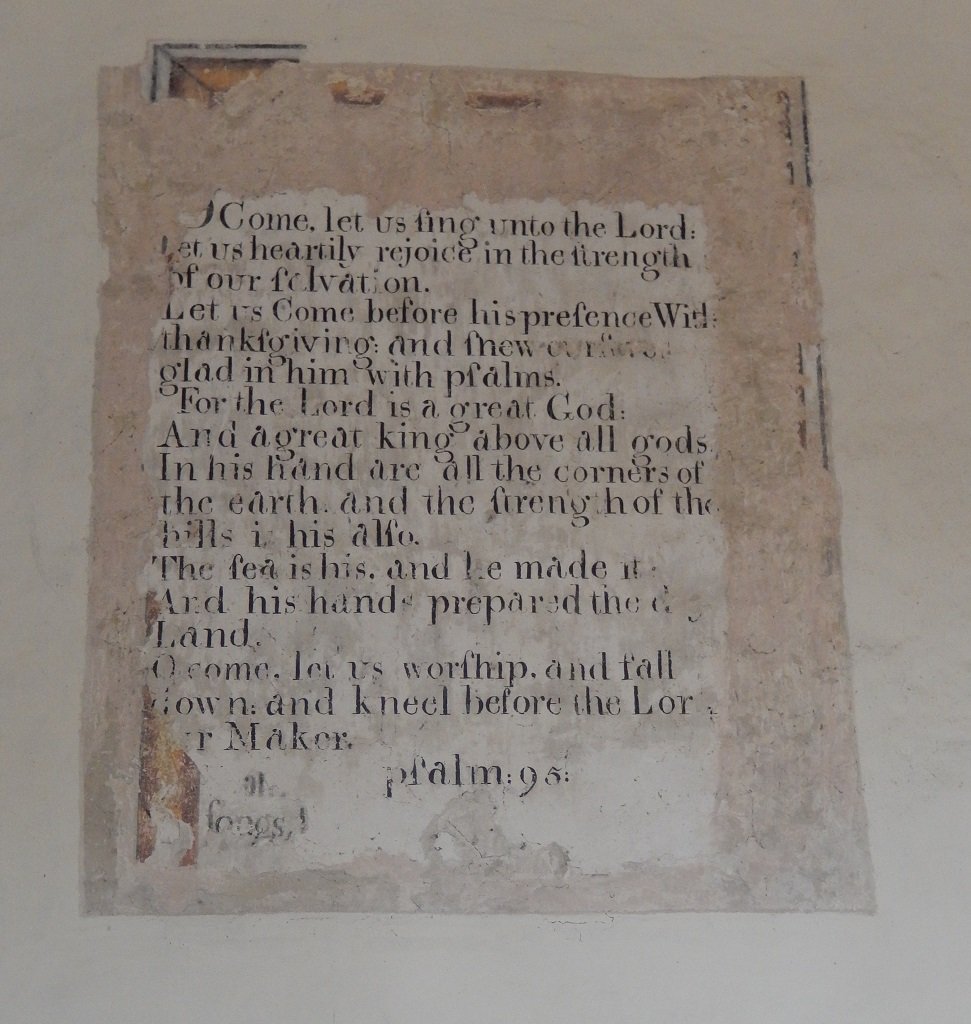 O Come, let us ſing unto the Lord:
Let us heartily rejoice in the ſtrength
of our ſalvation.
Let us Come before his preſence With
thankſgiving: and ſhew
glad in him with pſalms.
For the Lord is a great God:
And a great king above all gods.
In his hand are all the corners of
the earth. and the ſtrength of the
hills is his alſo.
The ſea is his. and he made it
And his hands prepared the
Land.
O come. let us worſhip. and fall
down: and kneel before the Lor
r Maker.
pſalm: 95:
ſongs,